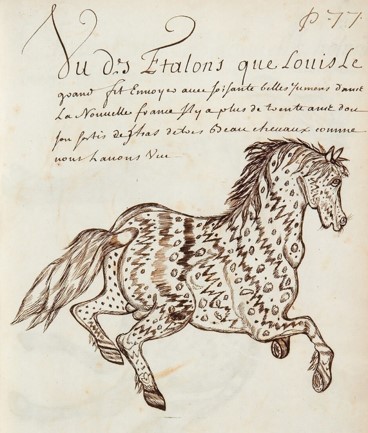 P. 77.
Vu des Etalons que Louis Le
grand fit Ennoyer auec soisante belles Jumens dans
La Nouuelle france Jl y a plus de trente ans dou
son sortis de gras de tres beau cheuaux comme
nous Lauons Veu